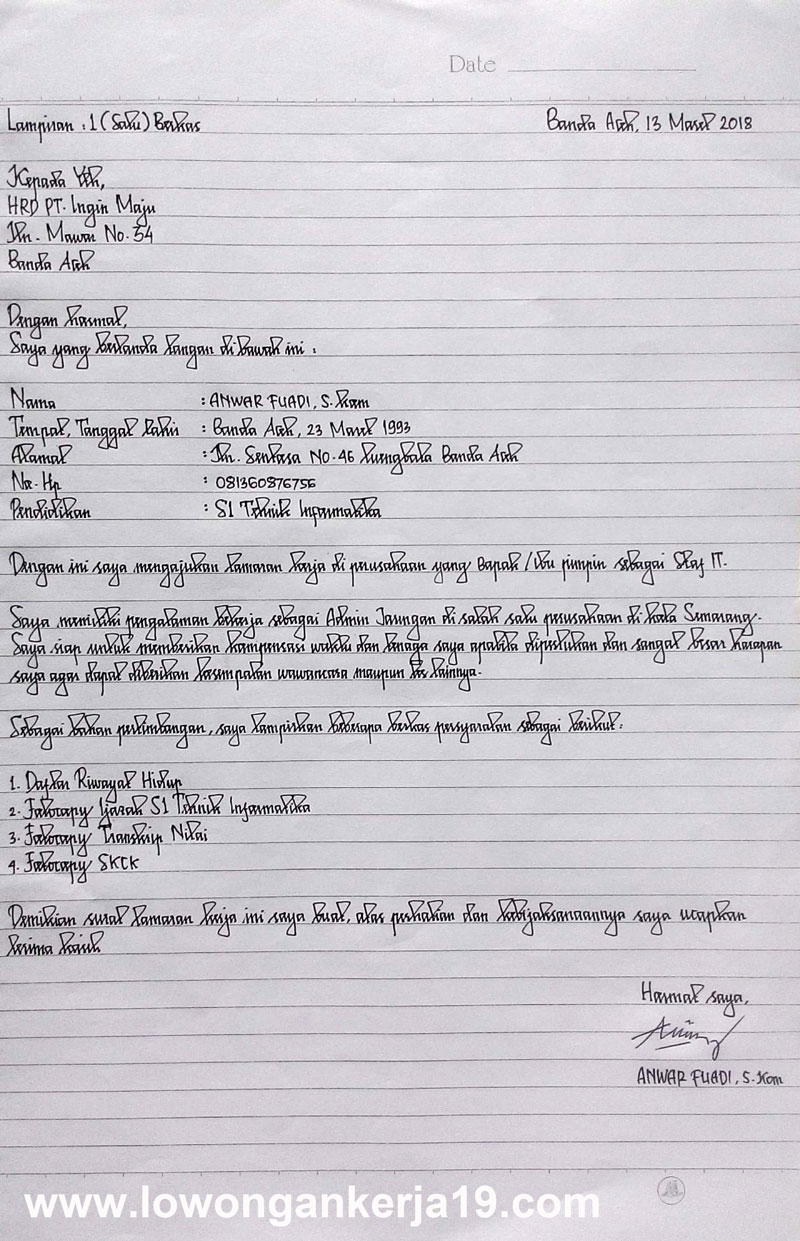 Date
Lampiran : 1 (Satu) Berkas
Banda Aceh, 13 Maret 2018
Kepada Yth,
HRD PT. Ingin Maju
Jln. Mawar No. 54
Banda Aceh
Dengan hormat,
Saya yang bertanda tangan di bawah ini :
Nama : ANWAR FUADI, S. kom
Tempat, Tanggal Lahir : Banda Aceh, 23 Maret 1993
Alamat : Jln. Sentosa No. 46 Luengbata Banda Aceh
No. Hp : 081360876756
Pendidikan : S1 Teknik Informatika
Dengan ini saya mengajukan lamaran kerja di perusahaan yang Bapak / Ibu pimpin sebagai Staf IT.
Saya memiliki pengalaman bekerja sebagai Admin Jaringan di salah satu perusahaan di kota Semarang.
Saya siap untuk memberikan kompensasi waktu dan tenaga saya apabila diperlukan dan sangat besar harapan
saya agar dapat diberikan kesempatan wawancara maupun tes lainnya.
Sebagai bahan pertimbangan, saya lampirkan beberapa berkas persyaratan sebagai berikut:
1. Daftar Riwayat Hidup
2. Fotocopy Ijazah S1 Teknik Informatika
3. Fotocopy Transkip Nilai
4. Fotocopy SKCK
Demikian surat lamaran kerja ini saya buat, atas perhatian dan kebijaksanaannya saya ucapkan
terima kasih
Hormat saya,
ANWAR FUADI, S. Kom
www.lowongankerja19.com